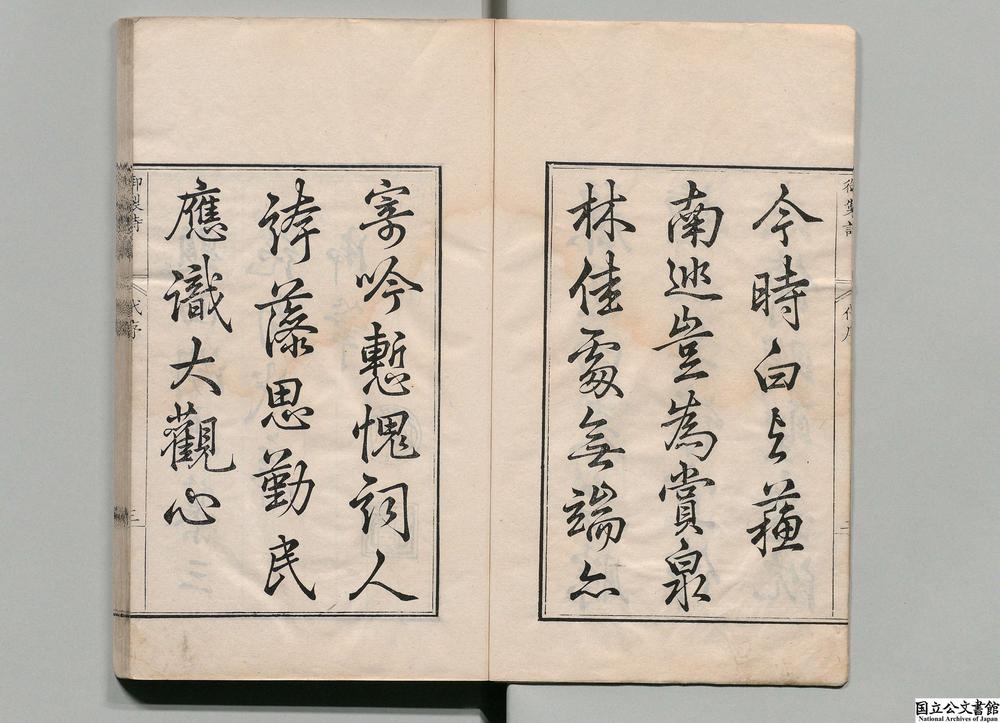 今時白与蘓
南巡豈為賞泉
林佳處無端亦
寄吟慙愧詞人
誇藻思勤民
應識大觀心
代序
三
国立公文書館
National Archives of Japan